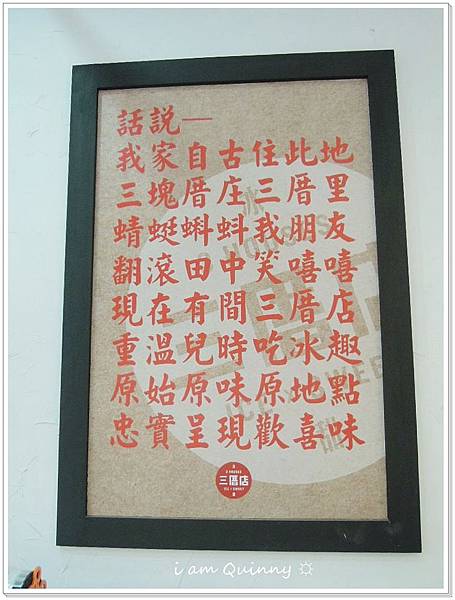 話説一
我家自古住此地
三塊厝庄三厝里
蜻蜓蝌蚪我朋友
翻滾田中笑嘻嘻
現在有間三厝店
重溫兒時吃冰趣
原始原味原地點
忠實呈現歡喜味
冰
3 HOUSES
三厝店
3 HOUSES
三厝店
ICE X SWEET
i am Quinny